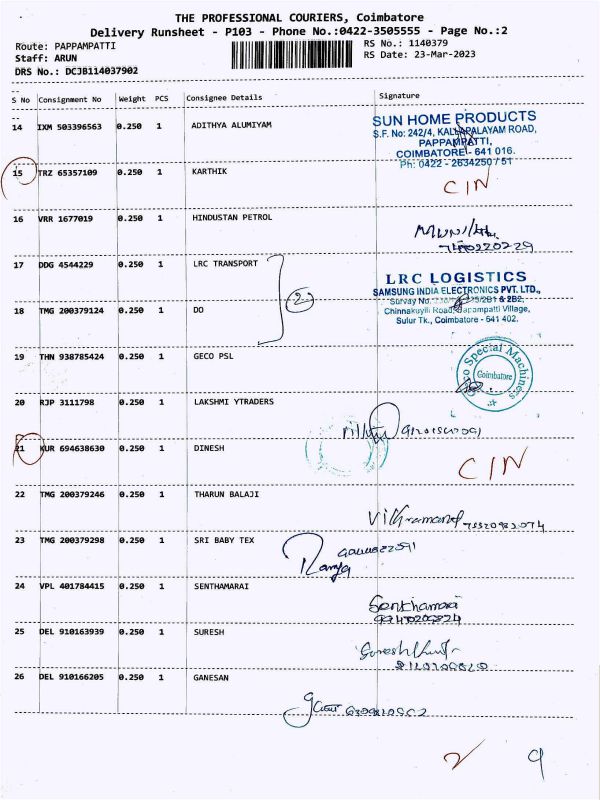 THE PROFESSIONAL COURIERS, Coimbatore
Delivery Runsheet - P103 - Phone No.:0422-3505555 - Page No.:2
Route: PAPPAMPATTI RS No.: 1140379
Staff: ARUN RS Date: 23-Mar-2023
DRS No.: DCJB114037902
S No Consignment No Weight PCS Consignee Details Signature
14 IXM 503396563 0.250 1 ADITHYA ALUMIYAM
SUN HOME PRODUCTS
S.F. No: 242/4, KALLAPALAYAM ROAD,
PAPPAMPATTI,
COIMBATORE - 641 016.
Ph: 0422 - 2634250 / 51
15 TRZ 65357109 0.250 1 KARTHIK
CIN
16 VRR 1677019 0.250 1 HINDUSTAN PETROL
17 DDG 4544229 0.250 1 LRC TRANSPORT
2
LRC LOGISTICS
SAMSUNG INDIA ELECTRONICS PVT. LTD.,
Survay No. 2B1 & 2B2,
Chinnakuyili Road, Papampatti Village,
Sulur Tk., Coimbatore - 641 402.
18 TMG 200379124 0.250 1 DO
19 THN 938785424 0.250 1 GECO PSL
Geco Special Machines
Coimbatore
20 RJP 3111798 0.250 1 LAKSHMI YTRADERS
21 KUR 694638630 0.250 1 DINESH
CIN
22 TMG 200379246 0.250 1 THARUN BALAJI
23 TMG 200379298 0.250 1 SRI BABY TEX
Ramya
24 VPL 401784415 0.250 1 SENTHAMARAI
Senthamarai
25 DEL 910163939 0.250 1 SURESH
26 DEL 910166205 0.250 1 GANESAN
9